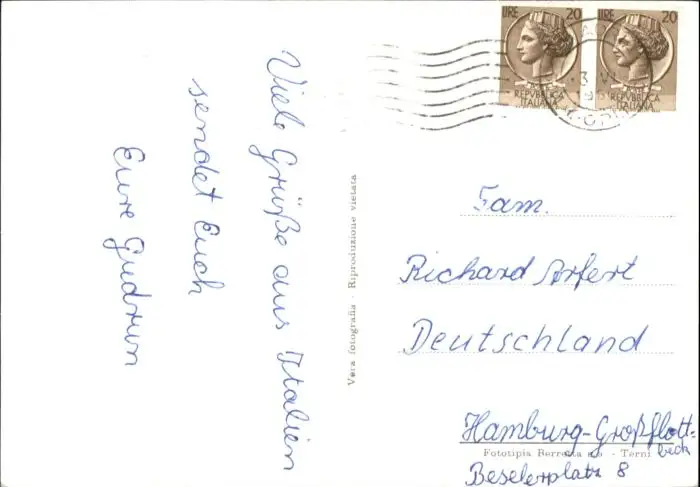 Viele Grüße aus Italien
sendet Euch
Eure Gudrun
Vera fotografia - Riproduzione vietata
LIRE 20
REPVBBLICA
ITALIANA
LIRE 20
REPVBBLICA
ITALIANA
Fam.
Richard Arfert
Deutschland
Hamburg-Großflott-
beck
Fototipia Berretta - Terni
Beselerplatz 8